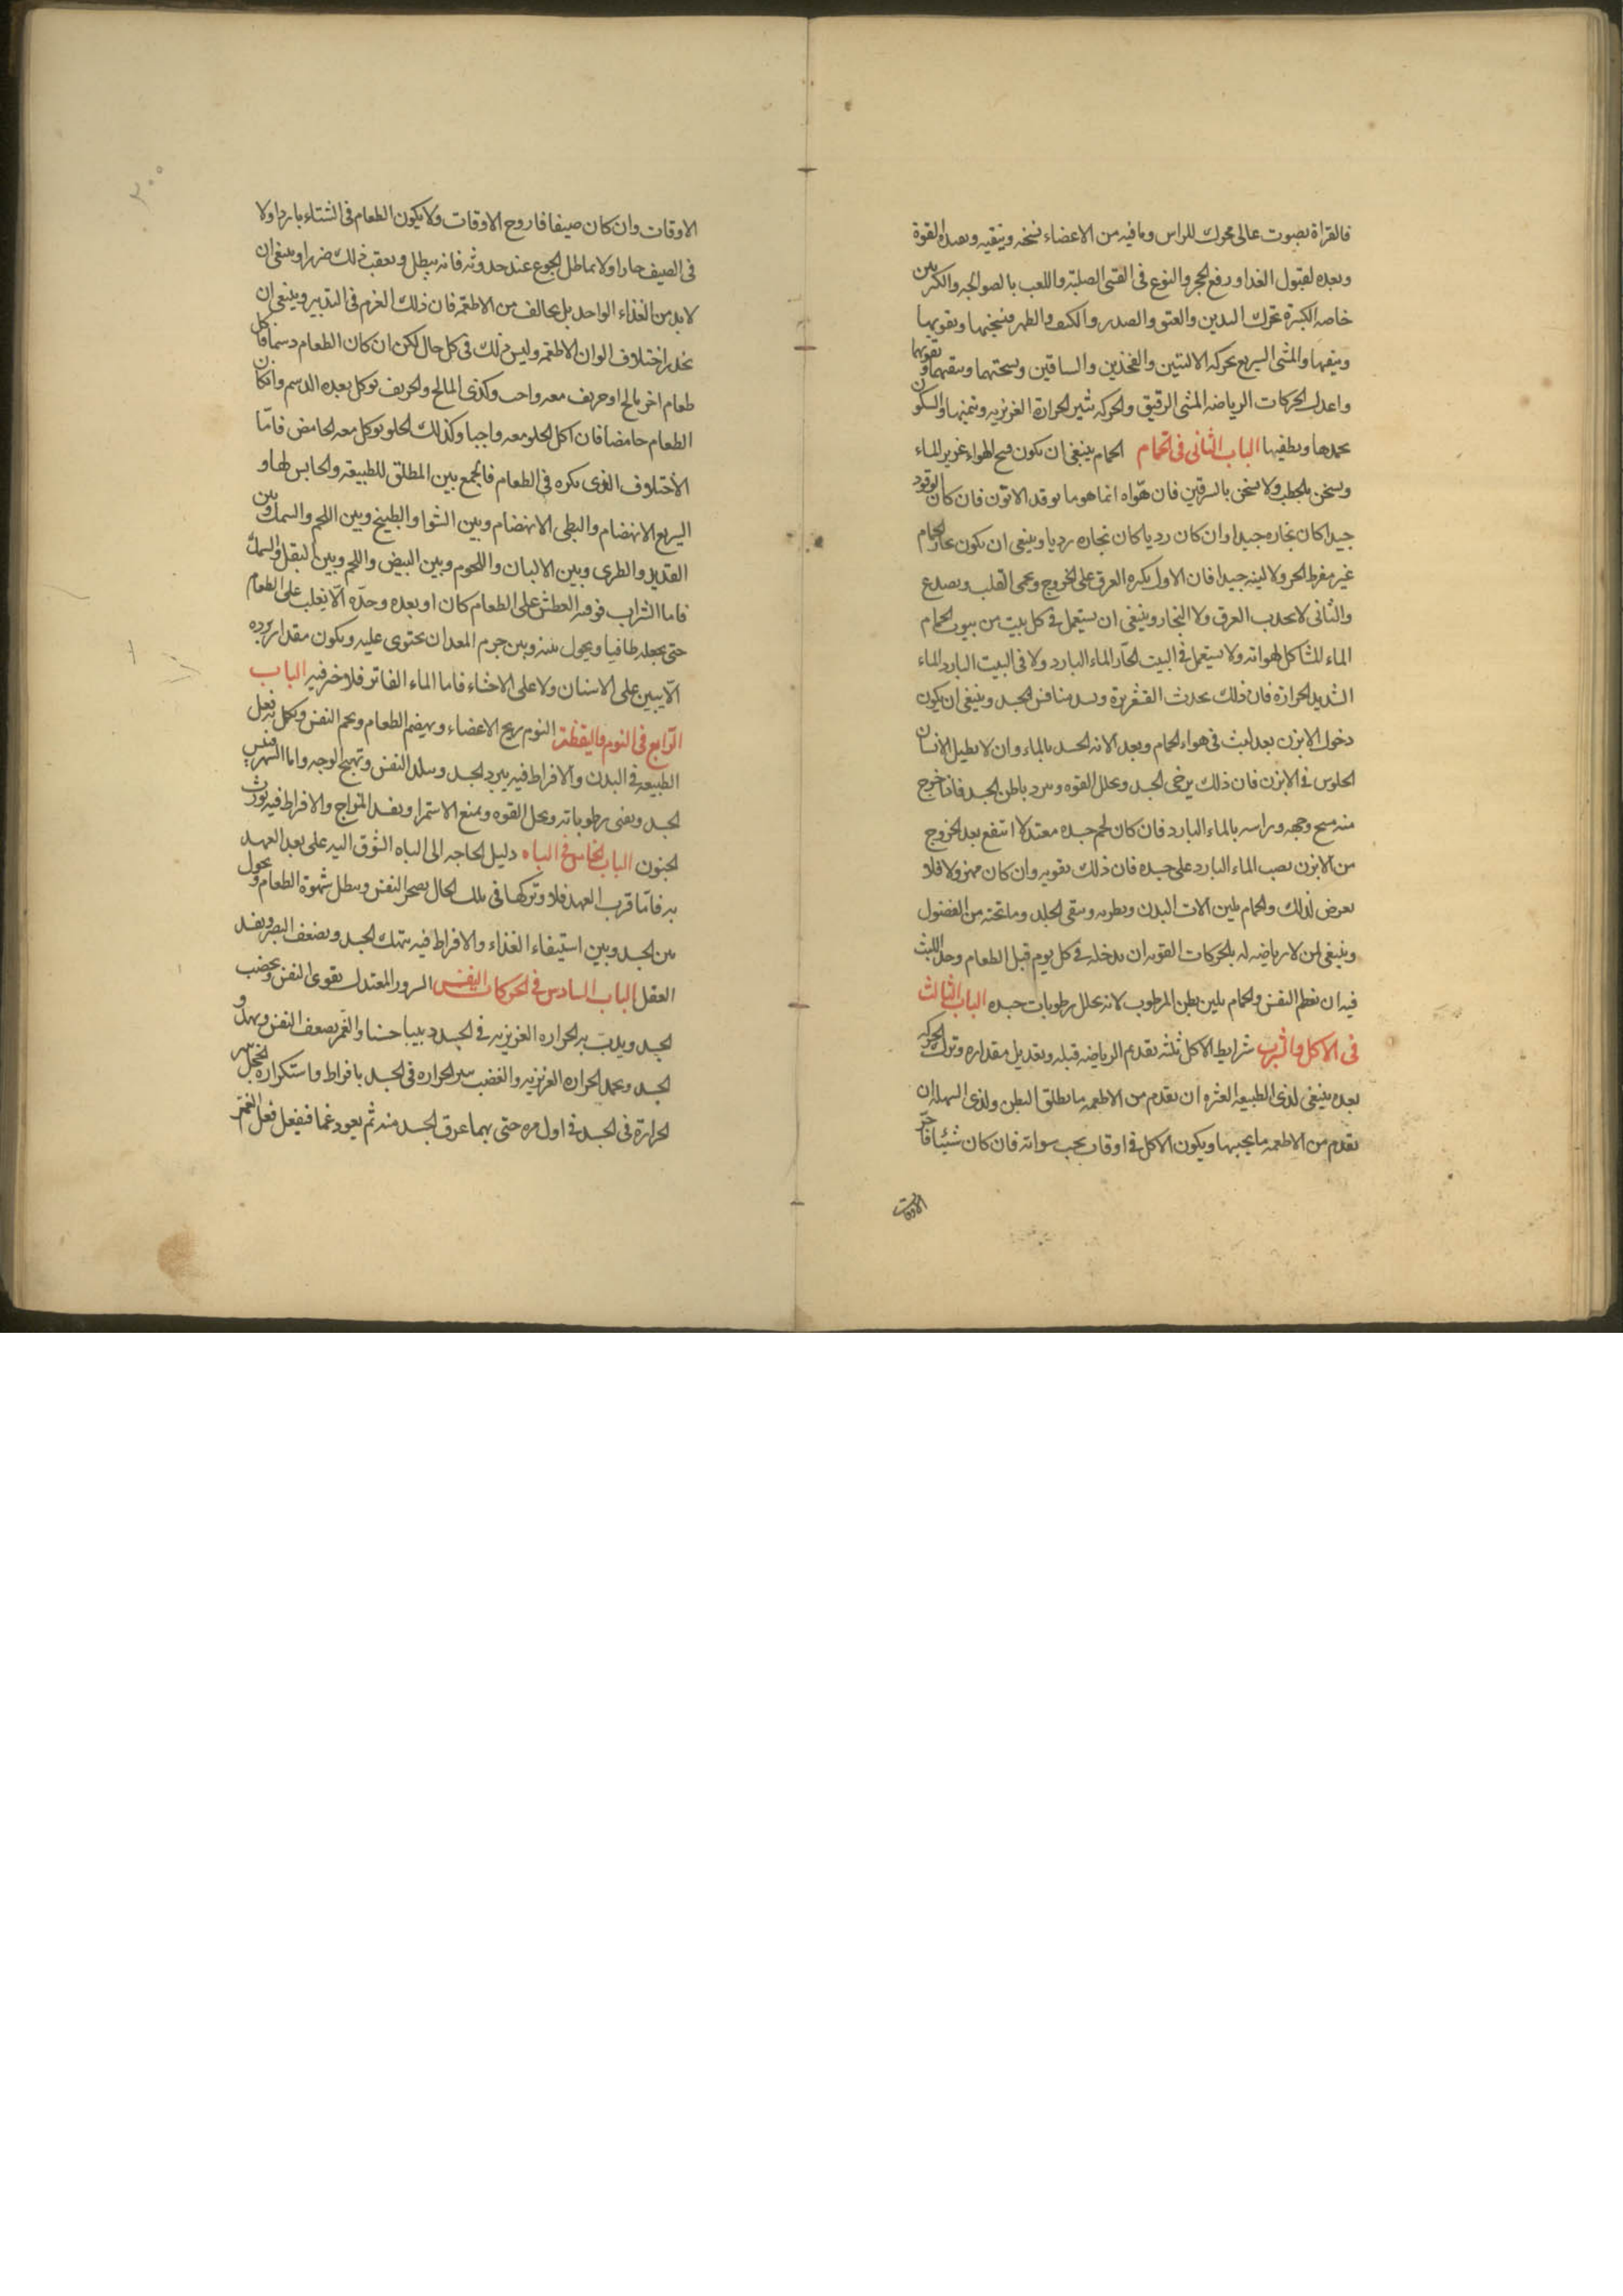 فالقراة بصوت عالى محرك للراس وما فيه من الاعضاء نسخنه وينقيه ويعده القوة
ويعده لقبول الغدا ورفع الحجر والنزع فى القسى الصلبة واللعب بالصوالجه والكرتين
خاصه الكبيرة تحرك اليدين والعنق والصدر والكتف والظهر فيسخنها ويقويها
وينقيها والمشى السريع بحركه الاليتين والفخذين والساقين ويسخنهما وينقيهما ويقويهما
واعدل الحركات الرياضه المشى الرقيق والحركه تثير الحرارة الغريزيه وتنميها والسكون
يخمدها ويطفيها الباب الثانى فى الحمام الحمام ينبغى ان يكون فسيح الهواء غزير الماء
ويسخن بالحطب ولا يسخن بالسرقين فان هواه انما هو ما يوقد الاتون فان كان الوقود
جيدا كان بخاره جيدا وان كان رديا كان بخاره رديا وينبغى ان يكون بخار الحمام
غير مفرط الحر ولا لينه جيدا فان الاول يكره العرق على الخروج ويحمى القلب ويصدع
والثانى لا يجذب العرق ولا البخار وينبغى ان يستعمل فى كل بيت من بيوت الحمام
الماء المشاكل لهوائه ولا يستعمل فى البيت الحار الماء البارد ولا فى البيت البارد الماء
الشديد الحرارة فان ذلك يحدث القشعريرة ويسد منافس الجسد وينبغى ان يكون
دخول الابزن بعد لبث فى هواء الحمام وبعد الانه الجسد بالماء وان لا يطيل الانسان
الجلوس فى الابزن فان ذلك يرخى الجسد ويحلل القوه ويبرد باطن الجسد فاذا خرج
منه مسح وجهه وراسه بالماء البارد فان كان لحم جسده معتدلا انتفع بعد الخروج
من الابزن بصب الماء البارد على جسده فان ذلك يقويه وان كان مهزولا فلا
يعرض لذلك والحمام يلين الات البدن ويطربه وينقى الجلد وما تحته من الفضول
وينبغى لمن لا رياضه له بالحركات القويه ان يدخله فى كل يوم قبل الطعام وحد اللبث
فيه ان يعظم النفس والحمام يلين بطن المرطوب لانه يحلل رطوبات جسده الباب الثالث
فى الاكل والشرب شرايط الاكل ثلثه تقديم الرياضه قبله وتعديل مقداره وترك الحركه
بعده ينبغى لذى الطبيعه العسره ان يقدم من الاطعمه ما يطلق البطن ولذى السهله ان
يقدم من الاطعمه ما يحبسها ويكون الاكل فى اوقات يحب سواته فان كان شتا فاحر
الاوقات
الاوقات وان كان صيفا فاروح الاوقات ولا يكون الطعام فى الشتاء باردا ولا
فى الصيف حارا ولا يماطل الجوع عند حدوثه فانه يبطل ويعقب ذلك ضررا وينبغى ان
لا يدمن الغذاء الواحد بل يخالف من الاطعمة فان ذلك الزم فى التدبير وينبغى ان
يحذر اختلاف الوان الاطعمه وليس ذلك فى كل حال لكن ان كان الطعام دسما فاكل
طعام اخر مالح او حريف معه واجب وكذى المالح والحريف يوكل بعده الدسم وان كان
الطعام حامضا فان اكل الحلو معه واجبا وكذلك الحلو يوكل معه الحامض فامّا
الاختلاف الذى يكره فى الطعام فالجمع بين المطلق للطبيعة والحابس لها و
السريع الانهضام والبطى الانهضام وبين الشوا والطبيخ وبين اللحم والسمك وبين
القديد والطرى وبين الالبان واللحوم وبين البيض واللحم وبين البقل والسمك
فاما الشراب فوقته العطش على الطعام كان او بعده وحدّه الّا يغلب على الطعام
حتى يجعله طافيا ويحول بينه وبين جرم المعدان يحتوى عليه ويكون مقدار برده
الّا يبين على الاسنان ولا على الاحشاء فاما الماء الفاتر فلا خير فيه الباب
الرّابع فى النوم واليقظة النوم يريح الاعضاء ويهضم الطعام ويجم النفس ويكمل به فعل
الطبيعه فى البدن والافراط فيه يبرد الجسد ويبلد النفس ويهيج الوجه واما السهر فييبس
الجسد ويفنى رطوباته ويحل القوه ويمنع الاستمرا ويفسد المزاج والافراط فيه يورث
الجنون الباب الخامس فى الباه دليل الحاجه الى الباه الشوق اليه على بعد العهد
به فامّا قرب العهد فلا وتركها فى تلك الحال يضجر النفس ويبطل شهوة الطعام ويحول
بين الجسد وبين استيفاء الغذاء والافراط فيه ينهك الجسد ويضعف البصر ويفسد
العقل الباب السادس فى الحركات النفس السرور المعتدل يقوى النفس ويخصب
الجسد ويدبّ به الحراره الغريزيه فى الجسد دبيبا حسنا والغم يضعف النفس ويهزل
الجسد ويخمد الحراره الغريزيه والغضب يثير الحراره فى الجسد بافراط واستكراه والخجل يثير
الحرارة فى الجسد فى اول مره حتى ربما عرق الجسد منه ثم يعود غما فيفعل فعل الغم
٢٠٠